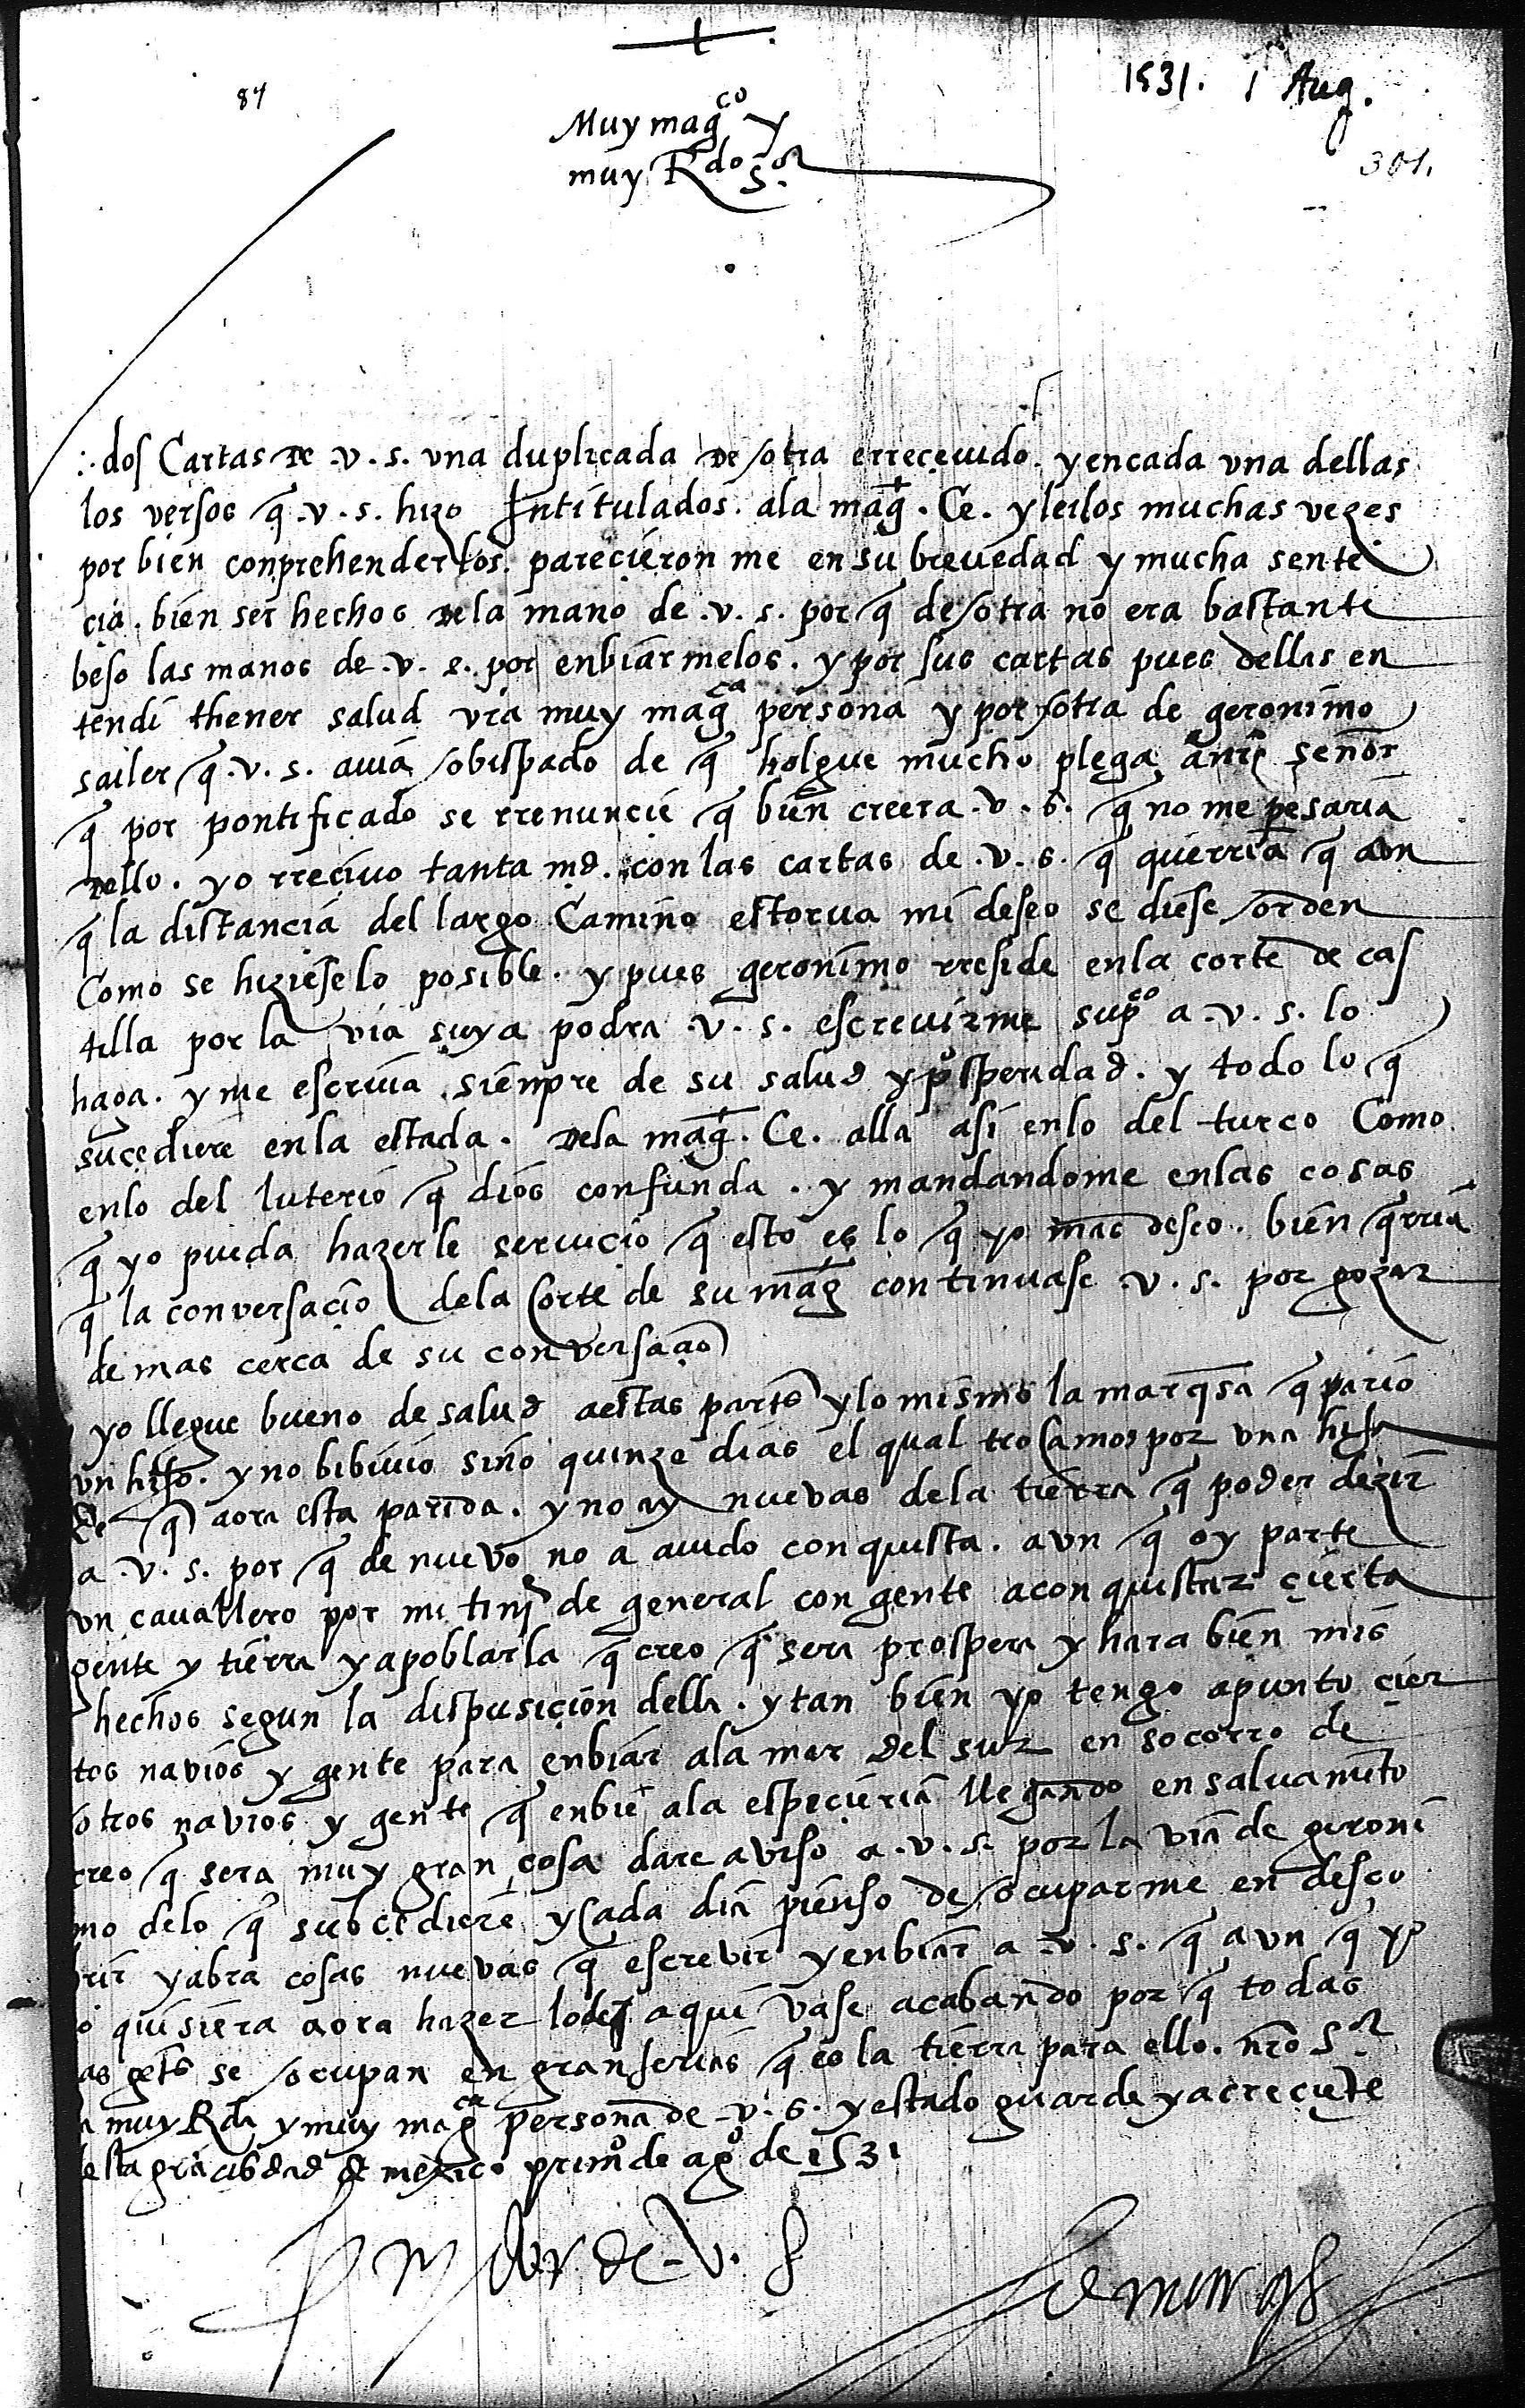 84
1531. 1 Aug.
301.
Muy magco y
muy Rdo Sor
dos Cartas de .v.s. una duplicada de otra errecevido. y en cada una dellas
los versos q̃ .v.s. hizo Intitulados. ala magt. Ce. y leilos muchas vezes
por bien conprehenderlos. parecieron me en su brevedad y mucha senten
cia. bien ser hechos de la mano de .v.s. por q̃ de otra no era bastante
beso las manos de .v.s. por enbiarmelos. y por sus cartas pues dellas en
tendi thener salud vra muy magca persona y por otra de geronimo
sailer q̃ .v.s. avia obispado de q̃ holgue mucho plega a nro señor
q̃ por pontificado se rrenuncie q̃ bien creera .v.s. q̃ no me pesaria
dello. yo rrecivo tanta md. con las cartas de .v.s. q̃ querria q̃ aun
q̃ la distancia del largo Camino estorva mi deseo se diese orden
Como se hiziese lo posible. y pues geronimo rreside en la corte de cas
tilla por la via suya podra .v.s. escrevirme supco a .v.s. lo
haga. y me escriva siempre de su salud y psperidad. y todo lo q̃
sucediere en la estada. de la magt. Ce. alla asi en lo del turco Como
en lo del luterio q̃ dios confunda. y mandandome en las cosas
q̃ yo pueda hazerle servicio q̃ esto es lo q̃ yo mas deseo. bien q̃rria
q̃ la conversacio de la Corte de su magt continuase .v.s. por gozar
de mas cerca de su conversacio
yo llegue bueno de salud a estas partes y lo mismo la marq̃sa q̃ pario
un hijo. y no bibivio sino quinze dias el qual trocamos por una hija
de q̃ aora esta parida. y no ay nuevas de la tierra q̃ poder dezir
a .v.s. por q̃ de nuevo no a avido conquista. aun q̃ oy parte
un cavallero por mi tini de general con gente a conquistar cierta
gente y tierra y a poblarla q̃ creo q̃ sera prospera y hara bien mis
hechos segun la dispusicion della. y tan bien yo tengo a punto cier
tos navios y gente para enbiar ala mar del sur en socorro de
otros navios y gente q̃ enbie ala especieria llegando en salvamito
creo q̃ sera muy gran cosa dare aviso a .v.s. por la via de geroni
mo delo q̃ subcediere y Cada dia pienso de ocuparme en descu
brir y abra cosas nuevas q̃ escrevir y enbiar a .v.s. q̃ aun q̃ yo
quisiera aora hazer lo de aqui vase acabando por q̃ todas
as gẽts se ocupan en granjerias q̃ es la tierra para ello. nro Sor
la muy Rda y muy magca persona de .v.s. y estado guarde y acreciẽte
desta grã cibdad de mexico primo de ago de 1531
servidor de .v. s
El marqs